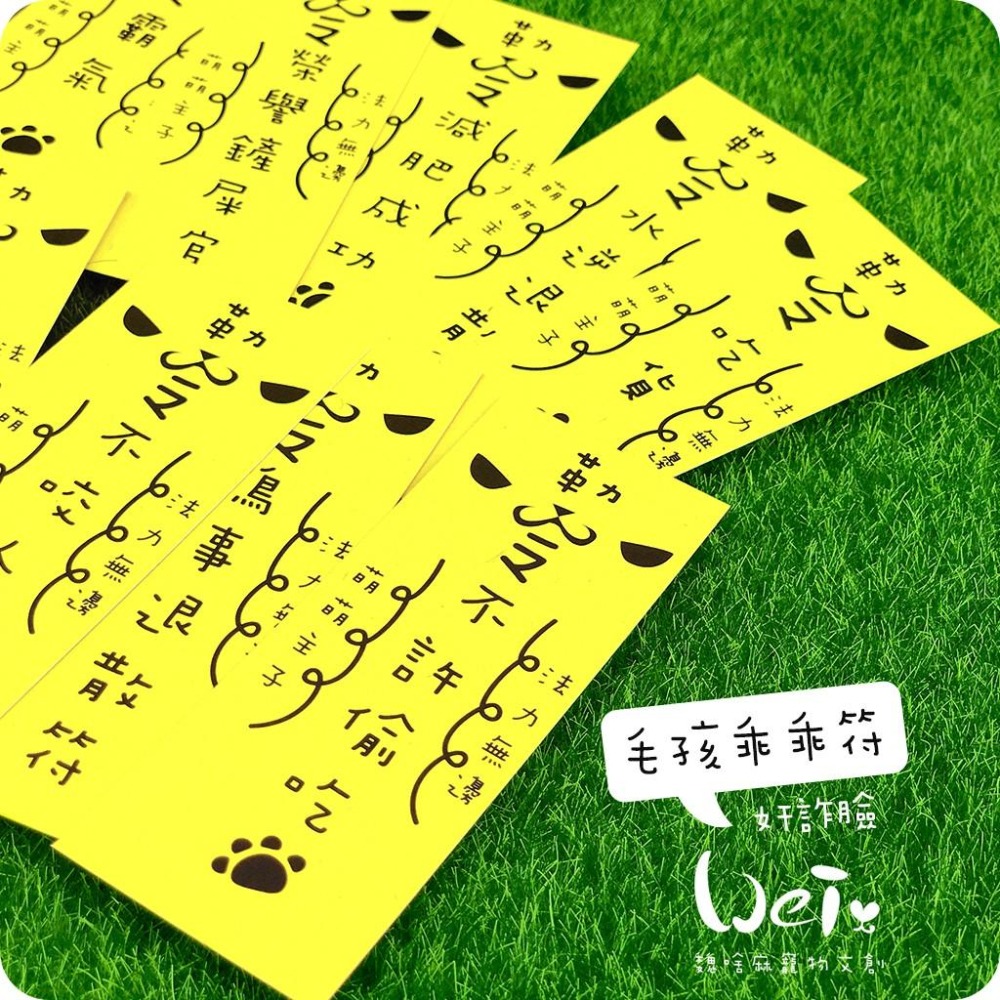 霸氣
萌萌主子
勅令
榮譽鏟屎官
法力無邊
勅令
減肥成功
法力
萌萌主子
勅令
水逆退散
萌萌主子
勅令
吃貨
法力無邊
萌萌主子
勅令
不咬人
法力無邊
萌
勅令
鳥事退散符
法力無
萌萌主子
勅令
不許偷吃
法力無邊
萌萌主子
毛孩乖乖符
奸詐臉
Wei
魏啥麻寵物文創